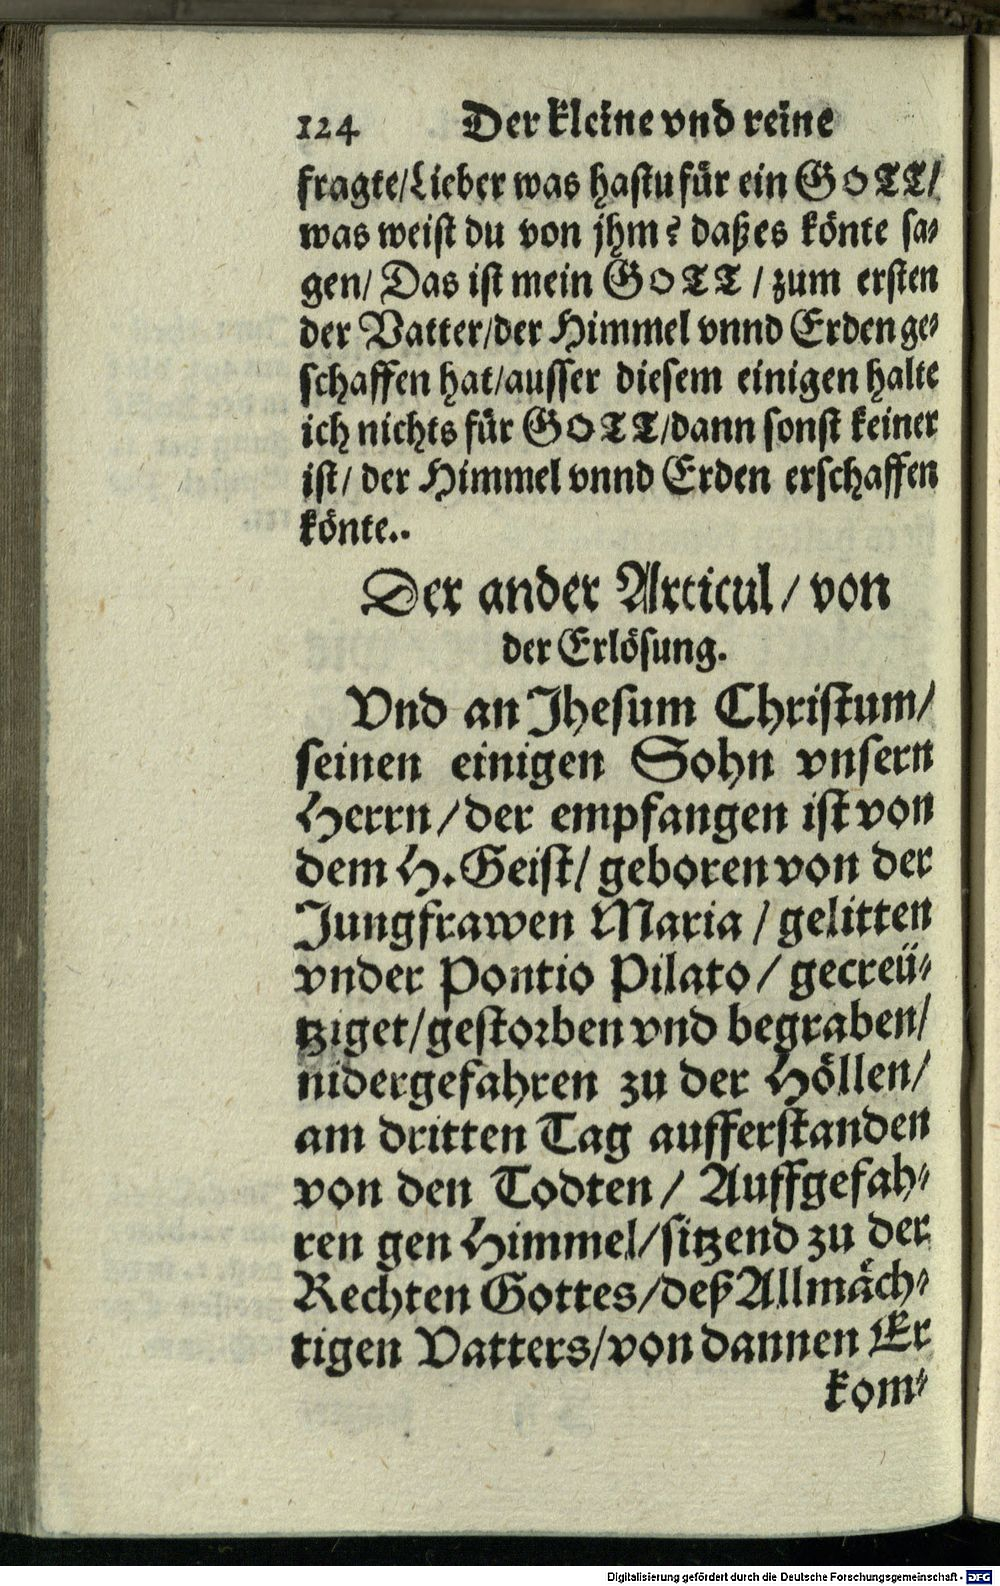 124 Der kleine vnd reine
fragte/Lieber was hastu für ein GOTT/
was weist du von jhm? daß es könte sa-
gen/ Das ist mein GOTT / zum ersten
der Vatter/der Himmel vnnd Erden ge-
schaffen hat/ausser diesem einigen halte
ich nichts für GOTT/dann sonst keiner
ist/ der Himmel vnnd Erden erschaffen
könte..
Der ander Articul / von
der Erlösung.
Vnd an Jhesum Christum/
seinen einigen Sohn vnsern
Herrn/der empfangen ist von
dem H. Geist/ geboren von der
Jungfrawen Maria / gelitten
vnder Pontio Pilato/ gecreü-
tziget/gestorben vnd begraben/
nidergefahren zu der Höllen/
am dritten Tag aufferstanden
von den Todten / Auffgefah-
ren gen Himmel/sitzend zu der
Rechten Gottes/deß Allmäch-
tigen Vatters/von dannen Er
kom-
Digitalisierung gefördert durch die Deutsche Forschungsgemeinschaft - DFG